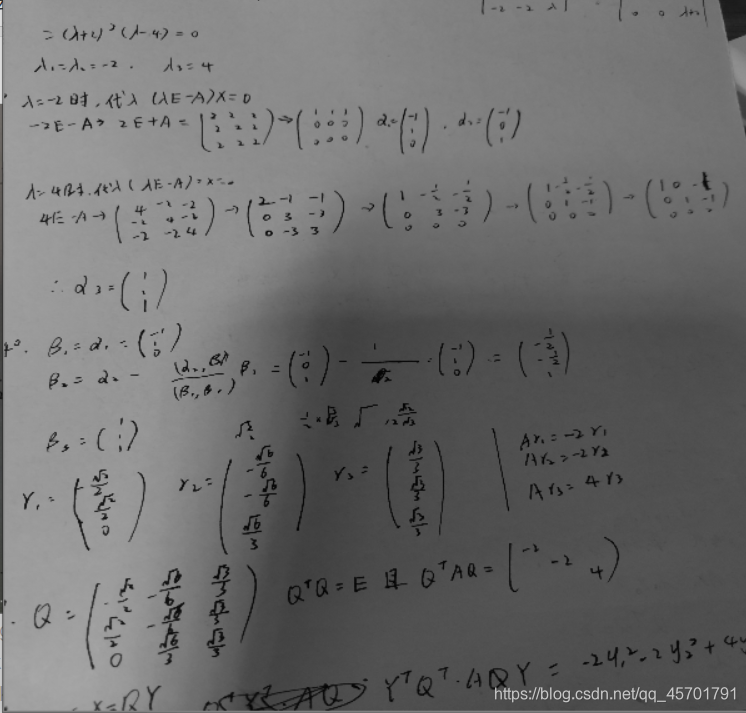 = (λ+2)²(λ-4) = 0
λ₁=λ₂=-2 . λ₃=4
λ=-2时,代入 (λE-A)X=0
-2E-A → 2E+A = (2 2 2; 2 2 2; 2 2 2) → (1 1 1; 0 0 0; 0 0 0) α₁=(-1; 1; 0) . α₂=(-1; 0; 1)
λ=4时,代入(λE-A)=X=0
4E-A → (4 -2 -2; -2 4 -2; -2 -2 4) → (2 -1 -1; 0 3 -3; 0 -3 3) → (1 -1/2 -1/2; 0 3 -3; 0 0 0) → (1 -1/2 -1/2; 0 1 -1; 0 0 0) → (1 0 -1; 0 1 -1; 0 0 0)
∴ α₃=(1; 1; 1)
β₁=α₁=(-1; 1; 0)
β₂=α₂- (α₂,β₁)/(β₁,β₁) β₁ = (-1; 0; 1) - 1/2 (-1; 1; 0) = (-1/2; -1/2; 1)
β₃=(1; 1; 1)
γ₁=(-√2/2; √2/2; 0) γ₂=(-√6/6; -√6/6; √6/3) γ₃=(√3/3; √3/3; √3/3)
Aγ₁=-2γ₁
Aγ₂=-2γ₂
Aγ₃=4γ₃
Q=(-√2/2 -√6/6 √3/3; √2/2 -√6/6 √3/3; 0 √6/3 √3/3) QᵀQ=E 且 QᵀAQ=(-2 -2 4)
X=QY YᵀQᵀ·AQY = -2y₁²-2y₂²+4y
https://blog.csdn.net/qq_45701791